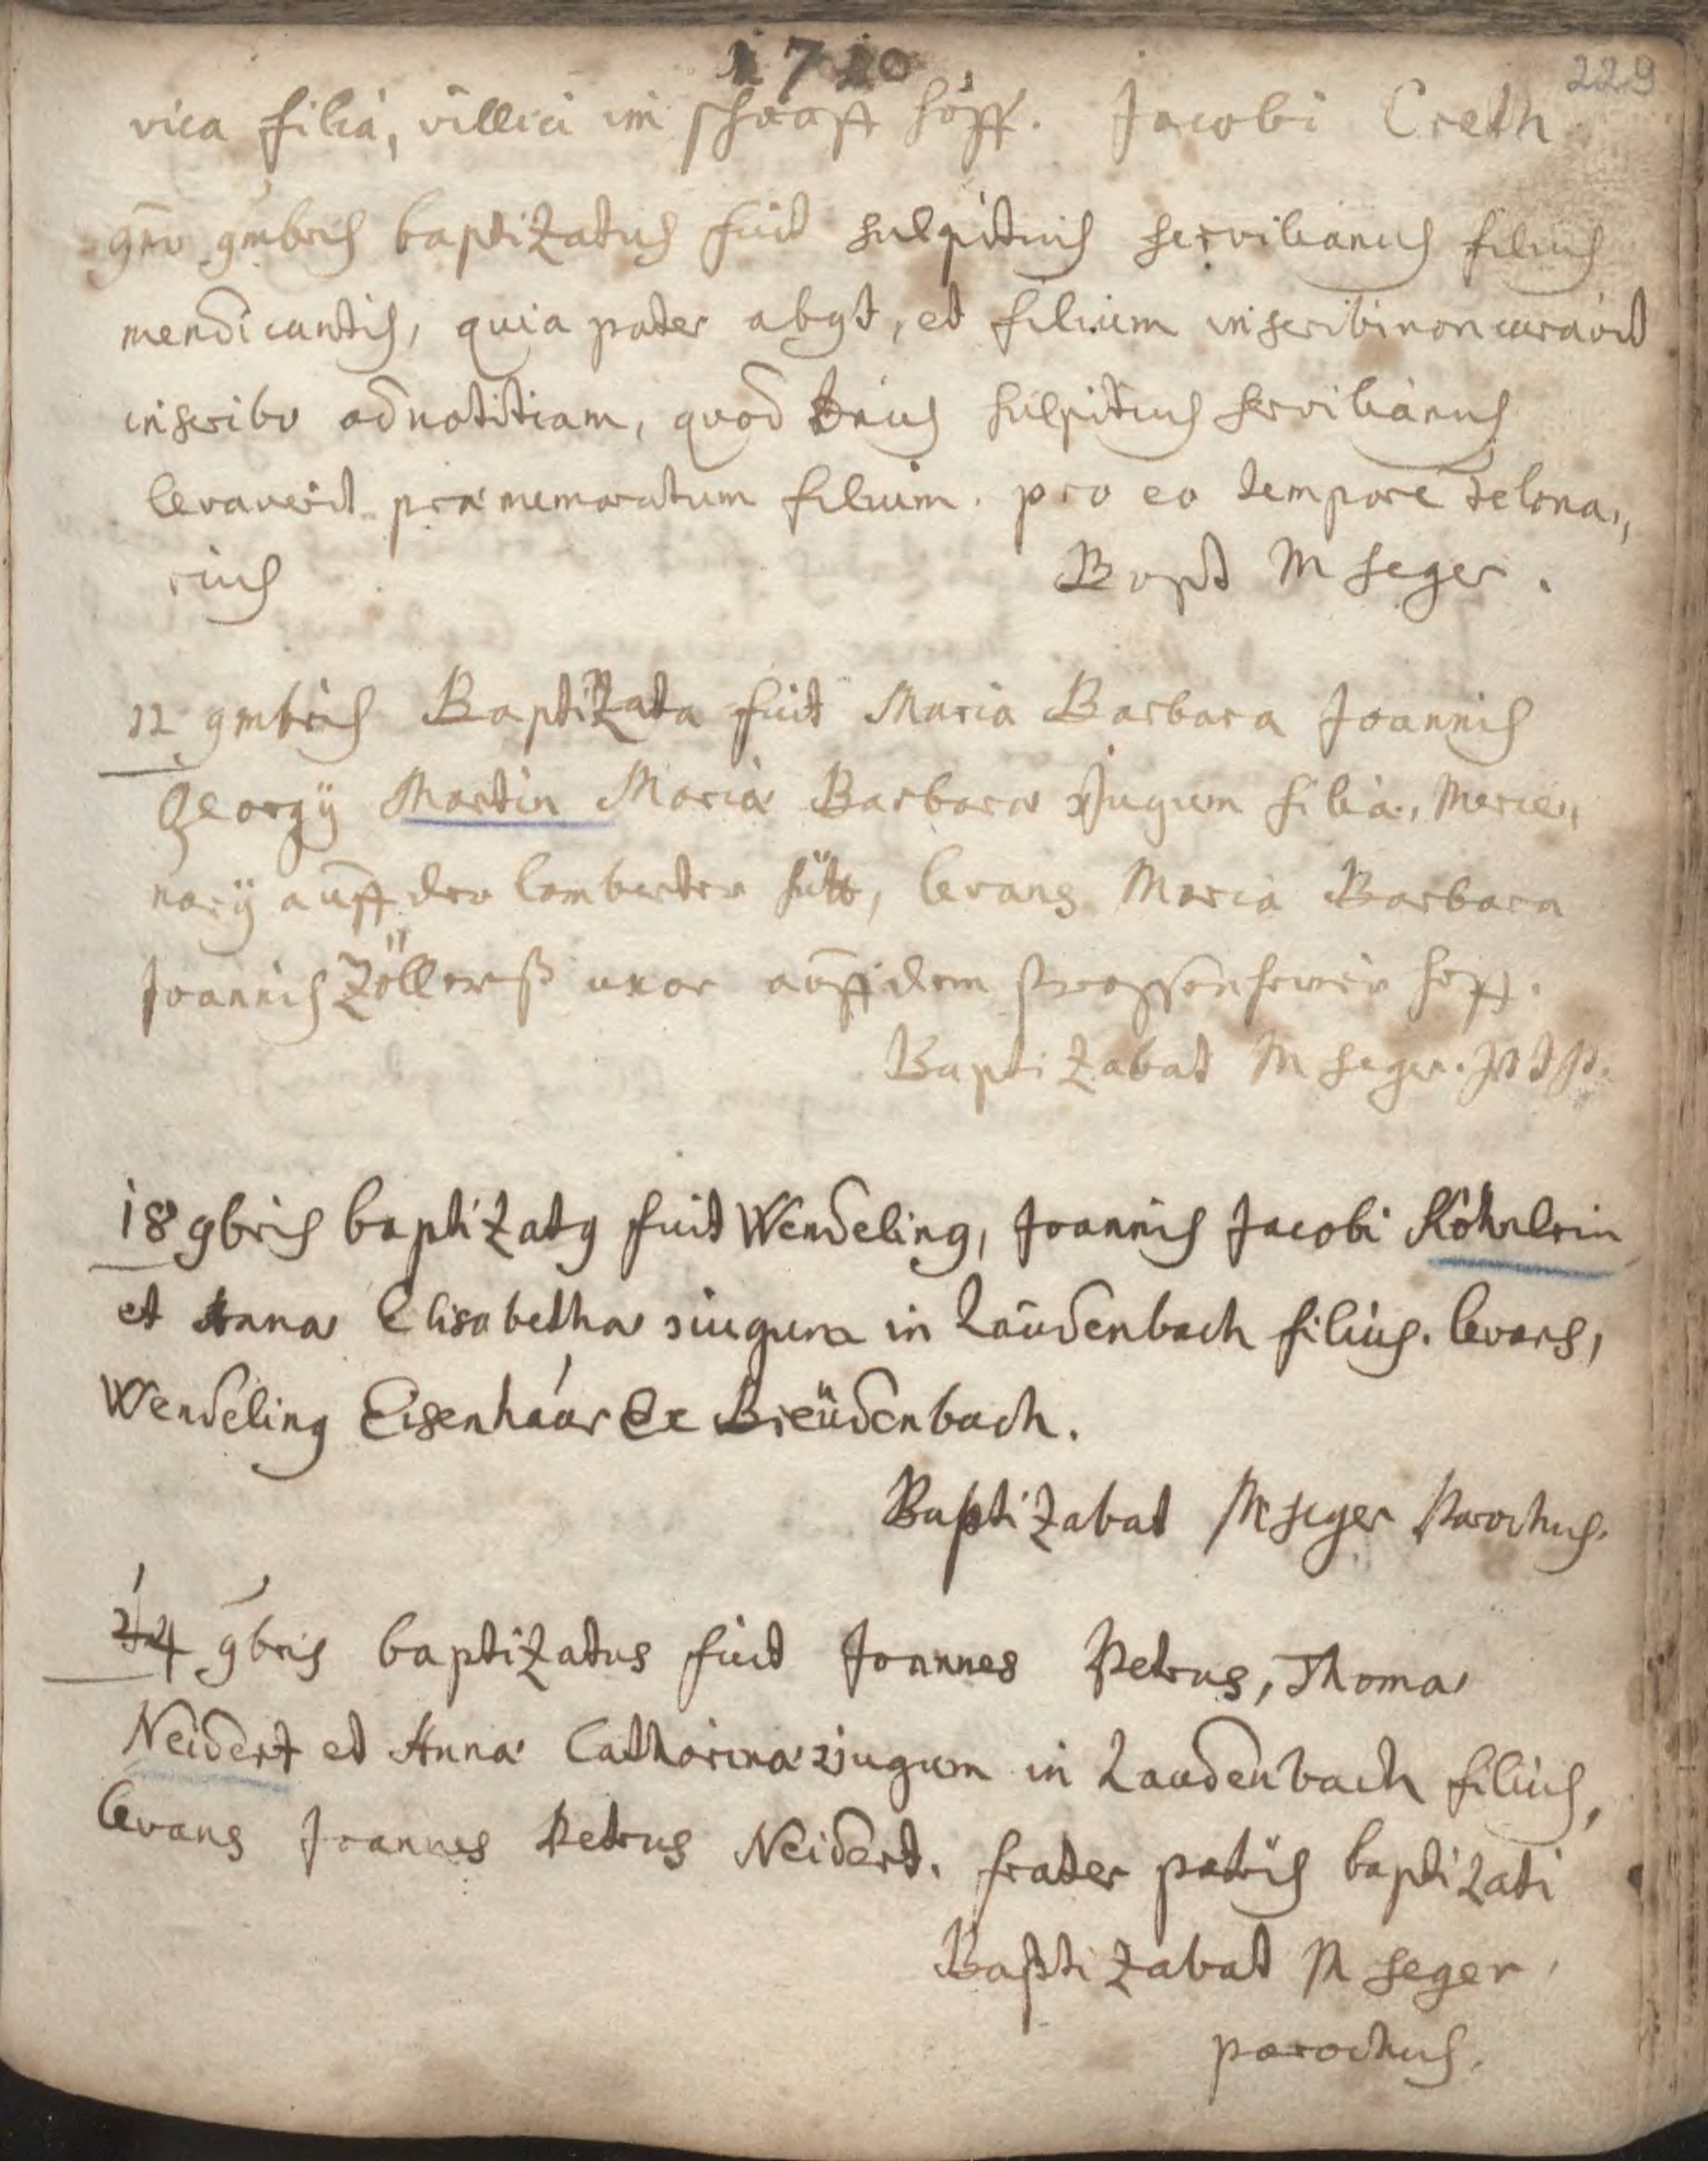 1710
229
vica filia, villici im schaaff höff. Jacobi Creth
9no 9mbris baptizatus fuit sulpitius servilianus filius
mendicantis, quia pater abyt, et filium inscribi non curavit
inscribo ad notitiam, quod Dnus sulpitius servilianus
levaverit praememoratum filium. pro eo tempore telona,,
rius Bapt M Seger.
12 9mbris Baptizata fuit Maria Barbara Joannis
Georgÿ Martin Maria Barbara Jugum filia, Merce,,
narÿ auff der lamberter hütt, levans Maria Barbara
Joannis Zöllerß uxor auff dem hoff.
Baptizabat M Seger. P t P.
18 9bris baptizatg fuit Wendeling, Joannis Jacobi Köhnlein
et Anna Elisabetha in Laudenbach filius. levans,
Wendeling Eisenhaúer Ex Breüdenbach.
Baptizabat M Seger Parochus.
24 9bris baptizatus fuit Joannes Petrus, Thoma
Neidert et Anna Catharina Jugum in Laudenbach filius,
levans Joannes Petrus Neidert. frater patris baptizati
Baptizabat M Seger
parochus.